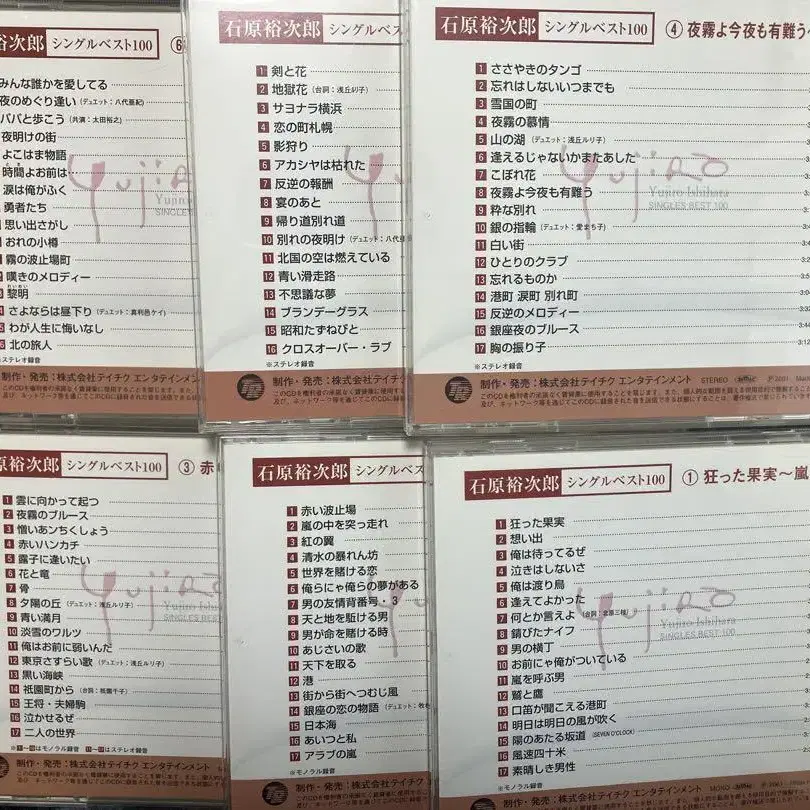 裕次郎 シングルベスト100 ⑥
みんな誰かを愛してる
夜のめぐり逢い (デュエット:八代亜紀)
パパと歩こう (共演:太田裕之)
夜明けの街
よこはま物語
時間よお前は
涙は俺がふく
勇者たち
思い出さがし
おれの小樽
霧の波止場町
嘆きのメロディー
黎明
さよならは昼下り (デュエット:真利邑ケイ)
わが人生に悔いなし
北の旅人
※ステレオ録音
制作・発売:株式会社テイチク エンタテインメント
石原裕次郎 シングルベス
1 剣と花
2 地獄花 (台詞:浅丘ルリ子)
3 サヨナラ横浜
4 恋の町札幌
5 影狩り
6 アカシヤは枯れた
7 反逆の報酬
8 宴のあと
9 帰り道別れ道
10 別れの夜明け (デュエット:八代亜
11 北国の空は燃えている
12 青い滑走路
13 不思議な夢
14 ブランデーグラス
15 昭和たずねびと
16 クロスオーバー・ラブ
※ステレオ録音
制作・発売:株式会社テイチク エ
石原裕次郎 シングルベスト100 ④ 夜霧よ今夜も有難う
1 ささやきのタンゴ
2 忘れはしないいつまでも
3 雪国の町
4 夜霧の慕情
5 山の湖 (デュエット:浅丘ルリ子)
6 逢えるじゃないかまたあした
7 こぼれ花
8 夜霧よ今夜も有難う
9 粋な別れ
10 銀の指輪 (デュエット:愛まち子)
11 白い街
12 ひとりのクラブ
13 忘れるものか
14 港町 涙町 別れ町
15 反逆のメロディー
16 銀座夜のブルース
17 胸の振り子
※ステレオ録音
Yujiro Ishihara
SINGLES BEST 100
制作・発売:株式会社テイチク エンタテインメント STEREO
原裕次郎 シングルベスト100 ③ 赤
1 雲に向かって起つ
2 夜霧のブルース
3 憎いあンちくしょう
4 赤いハンカチ
5 露子に逢いたい
6 花と竜
7 骨
8 夕陽の丘 (デュエット:浅丘ルリ子)
9 青い満月
10 淡雪のワルツ
11 俺はお前に弱いんだ
12 東京さすらい歌 (デュエット:浅丘ルリ子)
13 黒い海峡
14 祇園町から (台詞:祇園千子)
15 王将・夫婦駒
16 泣かせるぜ
17 二人の世界
制作・発売:株式会社テイチク エンタテインメント
石原裕次郎 シングルベス
1 赤い波止場
2 嵐の中を突っ走れ
3 紅の翼
4 清水の暴れん坊
5 世界を賭ける恋
6 俺らにゃ俺らの夢がある
7 男の友情背番号・3
8 天と地を駈ける男
9 男が命を賭ける時
10 あじさいの歌
11 天下を取る
12 港
13 街から街へつむじ風
14 銀座の恋の物語 (デュエット:牧
15 日本海
16 あいつと私
17 アラブの嵐
※モノラル録音
制作・発売:株式会社テイチク エ
石原裕次郎 シングルベスト100 ① 狂った果実～嵐
1 狂った果実
2 想い出
3 俺は待ってるぜ
4 泣きはしないさ
5 俺は渡り鳥
6 逢えてよかった
7 何とか言えよ (台詞:北原三枝)
8 錆びたナイフ
9 男の横丁
10 お前にゃ俺がついている
11 嵐を呼ぶ男
12 鷲と鷹
13 口笛が聞こえる港町
14 明日は明日の風が吹く
15 陽のあたる坂道 (SEVEN O'CLOCK)
16 風速四十米
17 素晴しき男性
※モノラル録音
Yujiro Ishihara
SINGLES BEST 100
制作・発売:株式会社テイチク エンタテインメント MONO